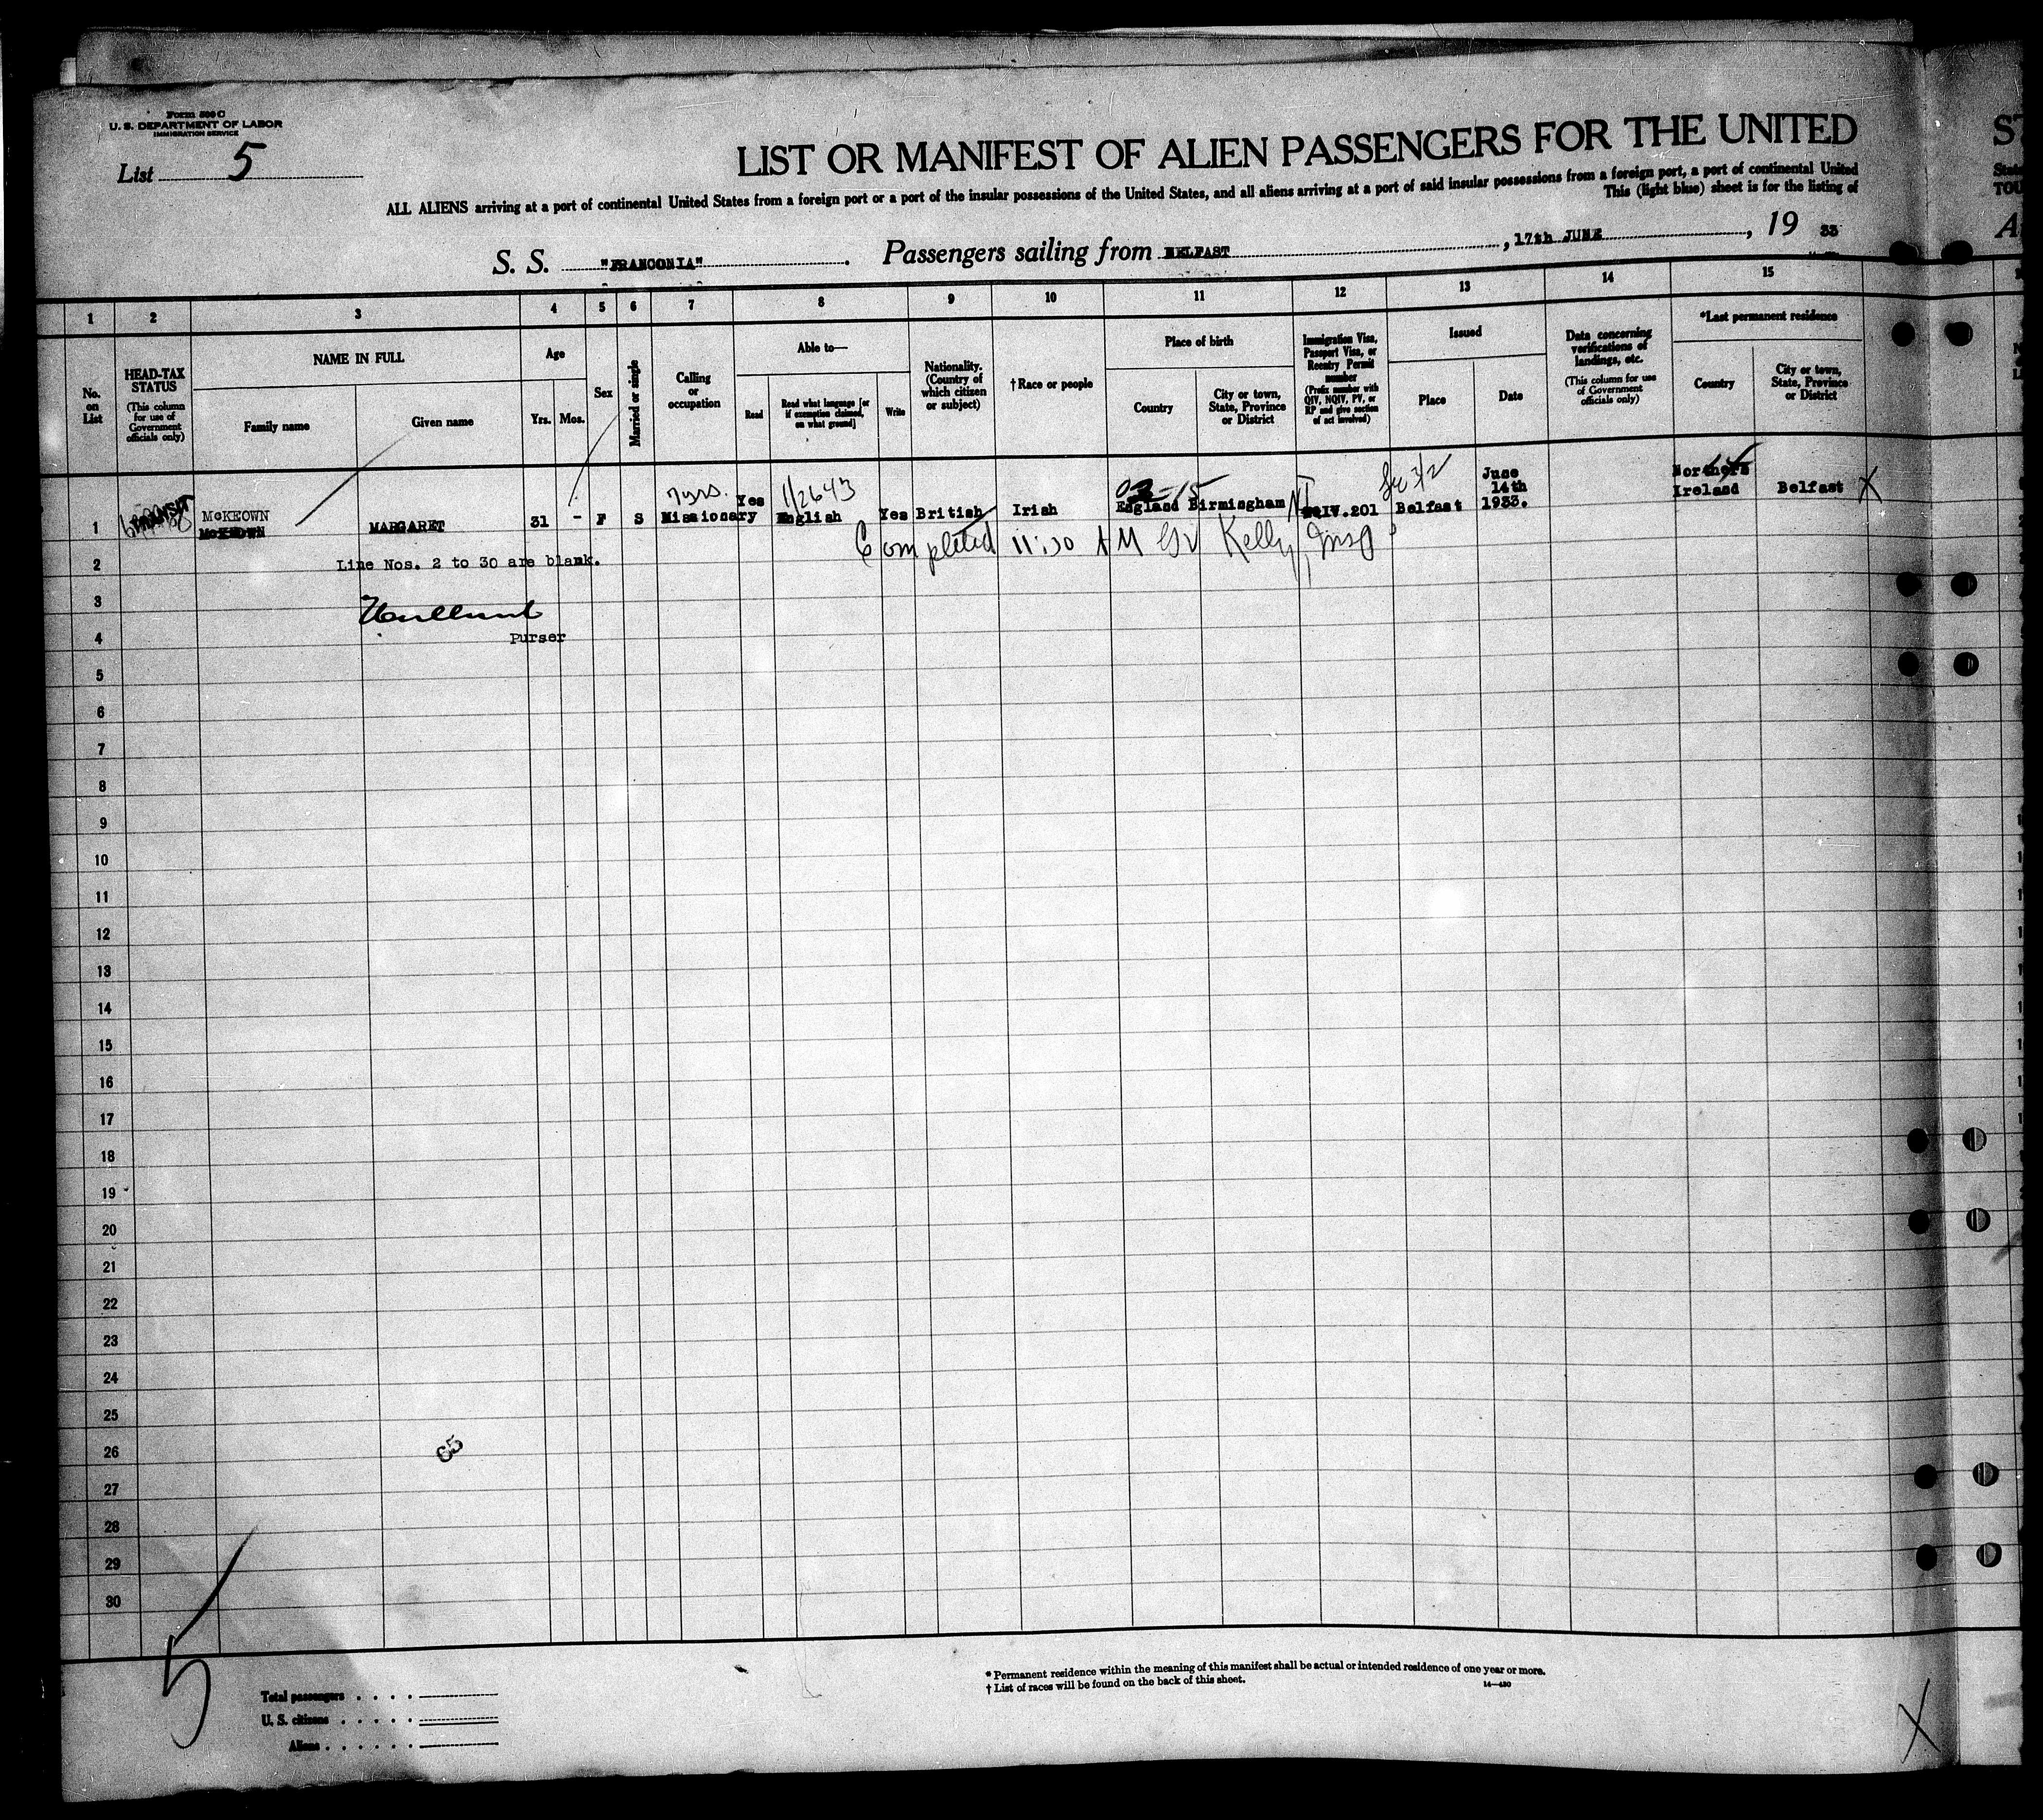 Form 500 C
U. S. DEPARTMENT OF LABOR
IMMIGRATION SERVICE
List 5
LIST OR MANIFEST OF ALIEN PASSENGERS FOR THE UNITED
ST
ALL ALIENS arriving at a port of continental United States from a foreign port or a port of the insular possessions of the United States, and all aliens arriving at a port of said insular possessions from a foreign port, a port of continental United
This (light blue) sheet is for the listing of
S. S. "FRANCONIA". Passengers sailing from BELFAST, 17th JUNE, 19 33
1 2 3 4 5 6 7 8 9 10 11 12 13 14 15
No. on List
HEAD-TAX STATUS
(This column for use of Government officials only)
NAME IN FULL
Family name
Given name
Age
Yrs.
Mos.
Sex
Married or single
Calling or occupation
Able to—
Read
Read what language [or if exemption claimed, on what ground]
Write
Nationality. (Country of which citizen or subject)
†Race or people
Place of birth
Country
City or town, State, Province or District
Immigration Visa, Passport Visa, or Reentry Permit number
(Prefix number with QIV, NQIV, PV, or RP and give section of act involved)
Issued
Place
Date
Data concerning verifications of landings, etc.
(This column for use of Government officials only)
*Last permanent residence
Country
City or town, State, Province or District
1 McKEOWN MARGARET 31 - F S Missionary Yes English Yes British Irish England Birmingham QIV.201 Belfast June 14th 1933. Northern Ireland Belfast X
McKEOWN
7 yrs.
1/2643
Completed 11:30 AM Kelly, Insp
2 Line Nos. 2 to 30 are blank.
3
4 Purser
5
6
7
8
9
10
11
12
13
14
15
16
17
18
19
20
21
22
23
24
25
26
65
27
28
29
30
5
Total passengers . . . .
U. S. citizens . . . . .
Aliens . . . . . .
* Permanent residence within the meaning of this manifest shall be actual or intended residence of one year or more.
† List of races will be found on the back of this sheet.
14—430
X